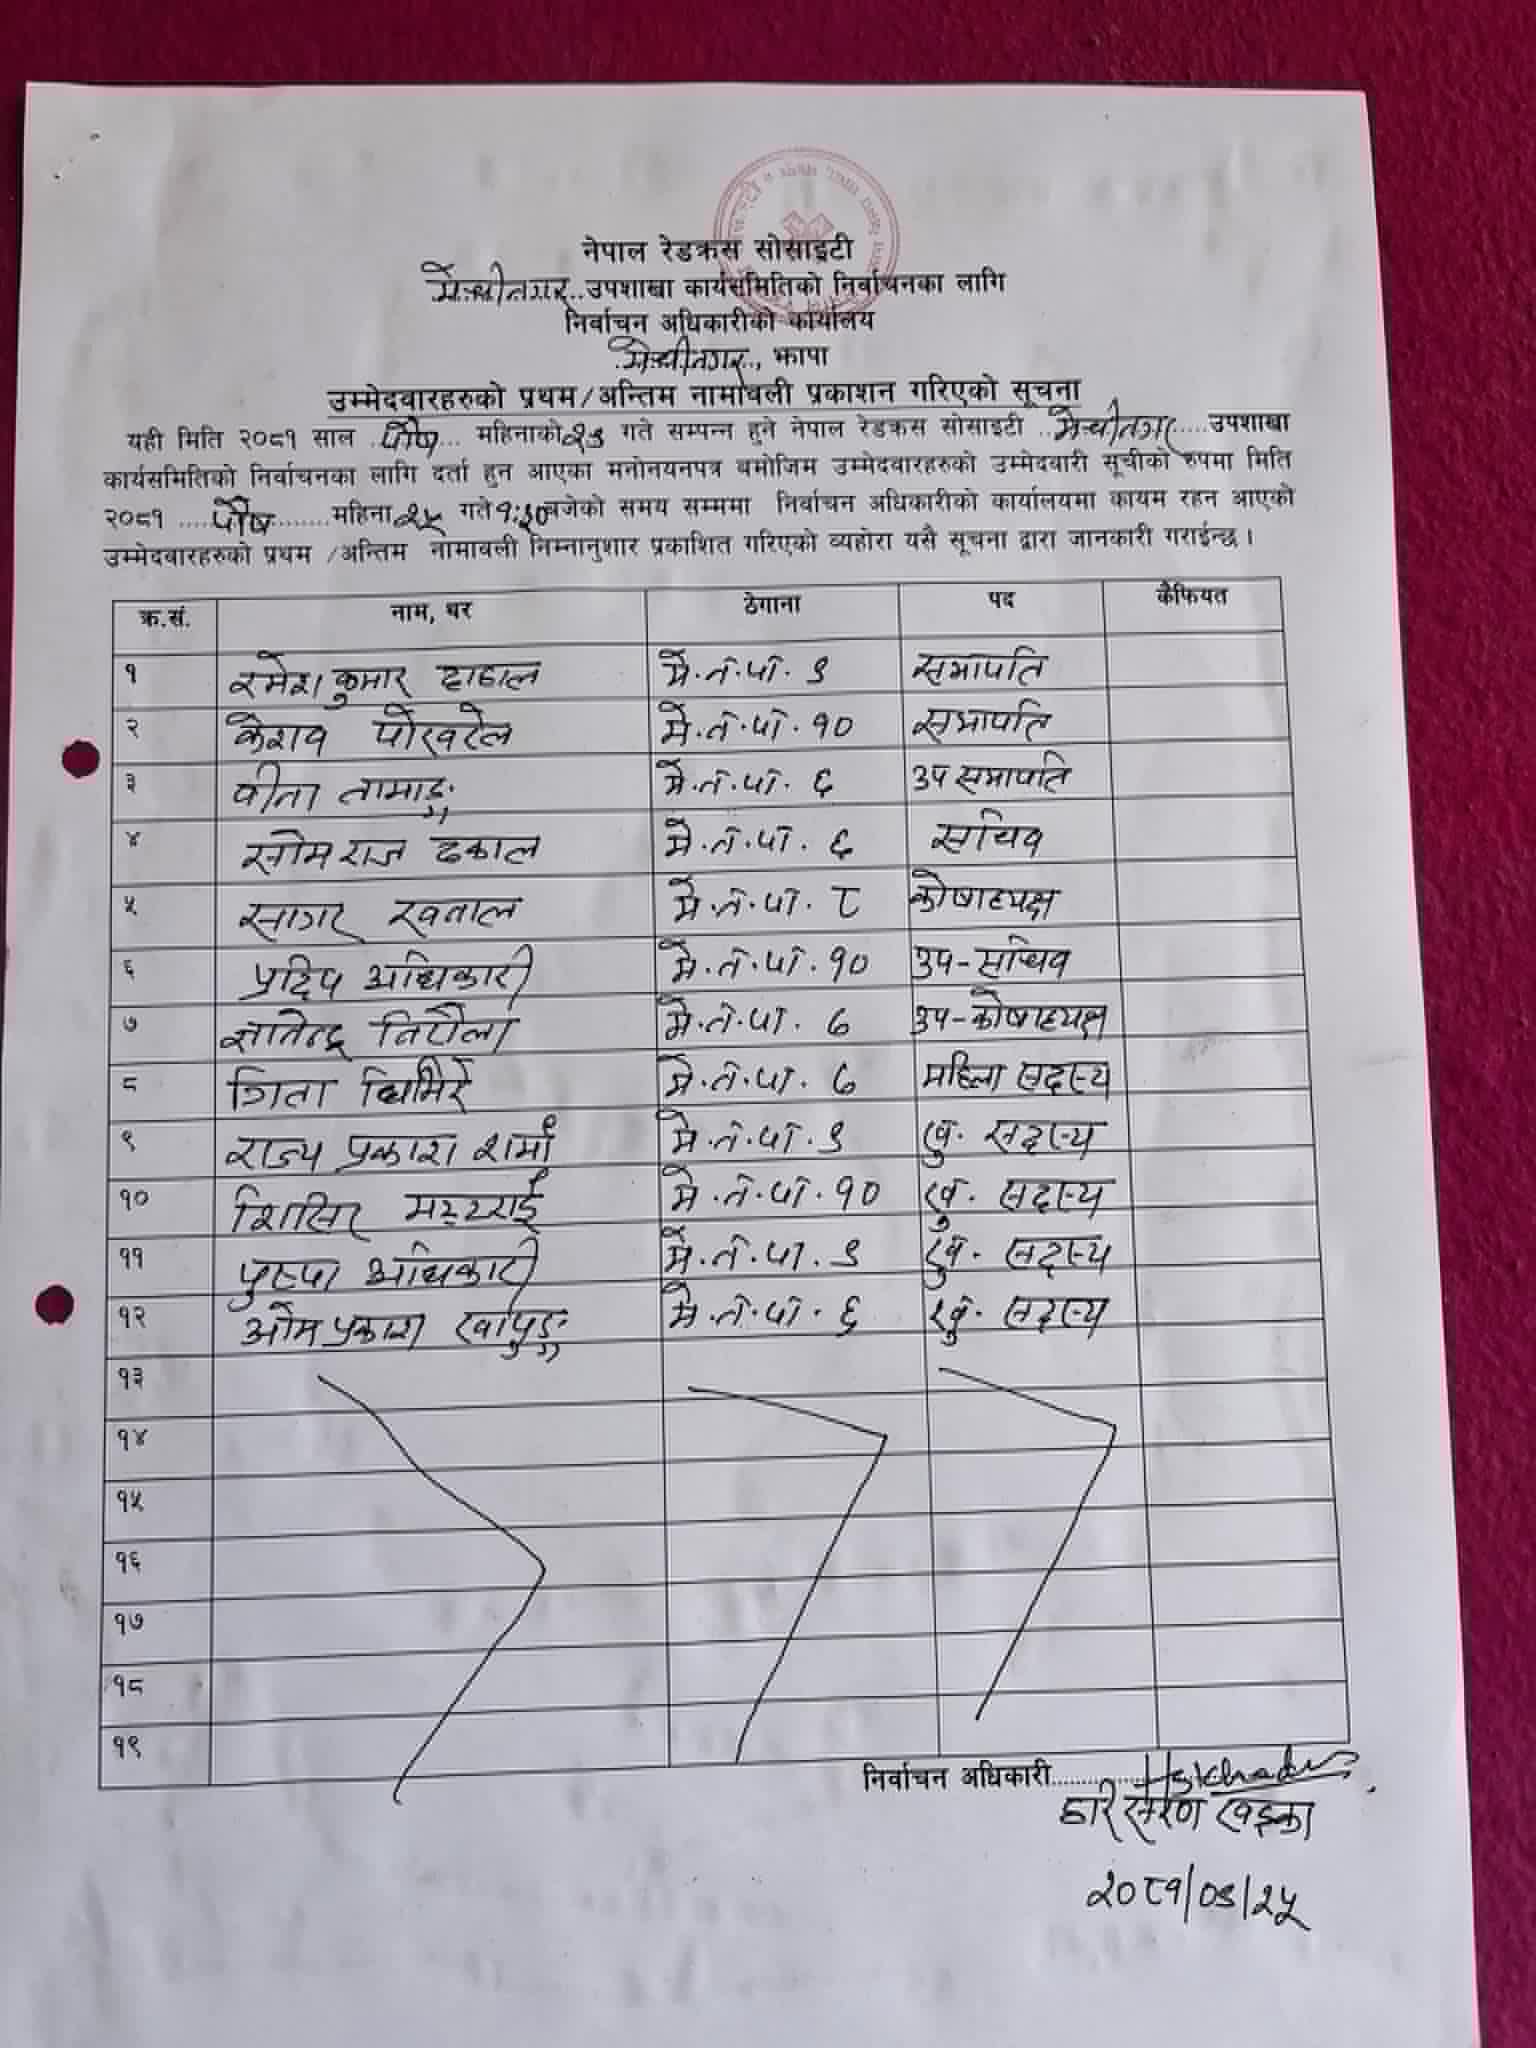 नेपाल रेडक्रस सोसाइटी
मेचीनगर..उपशाखा कार्यसमितिको निर्वाचनका लागि
निर्वाचन अधिकारीको कार्यालय
.मेचीनगर.., झापा
उम्मेदवारहरुको प्रथम/अन्तिम नामावली प्रकाशन गरिएको सूचना
यही मिति २०८१ साल ..पौष... महिनाको २७ गते सम्पन्न हुने नेपाल रेडक्रस सोसाइटी ..मेचीनगर.....उपशाखा
कार्यसमितिको निर्वाचनका लागि दर्ता हुन आएका मनोनयनपत्र बमोजिम उम्मेदवारहरुको उम्मेदवारी सूचीको रुपमा मिति
२०८१ .....पौष........महिना २५ गते १:३० बजेको समय सम्ममा निर्वाचन अधिकारीको कार्यालयमा कायम रहन आएको
उम्मेदवारहरुको प्रथम /अन्तिम नामावली निम्नानुशार प्रकाशित गरिएको व्यहोरा यसै सूचना द्वारा जानकारी गराईन्छ ।
क्र.सं. नाम, थर ठेगाना पद कैफियत
१ रमेश कुमार दाहाल मे.न.पा. ९ सभापति
२ केशव पोखरेल मे.न.पा. १० सभापति
३ वीना तामाङ्ग मे.न.पा. ६ उपसभापति
४ सोमराज ढकाल मे.न.पा. ६ सचिव
५ सागर खनाल मे.न.पा. ८ कोषाध्यक्ष
६ प्रदिप अधिकारी मे.न.पा. १० उप-सचिव
७ ज्ञानेन्द्र निरौला मे.न.पा. ७ उप-कोषाध्यक्ष
८ गिता घिमिरे मे.न.पा. ७ महिला सदस्य
९ राज्य प्रकाश शर्मा मे.न.पा. ९ खु. सदस्य
१० शिसिर भट्टराई मे.न.पा. १० खु. सदस्य
११ पुष्पा अधिकारी मे.न.पा. ९ खु. सदस्य
१२ ओमप्रकाश खापुङ्ग मे.न.पा. ६ खु. सदस्य
१३
१४
१५
१६
१७
१८
१९
निर्वाचन अधिकारी..............
हरि शरण खड्का
२०८१/०९/२५